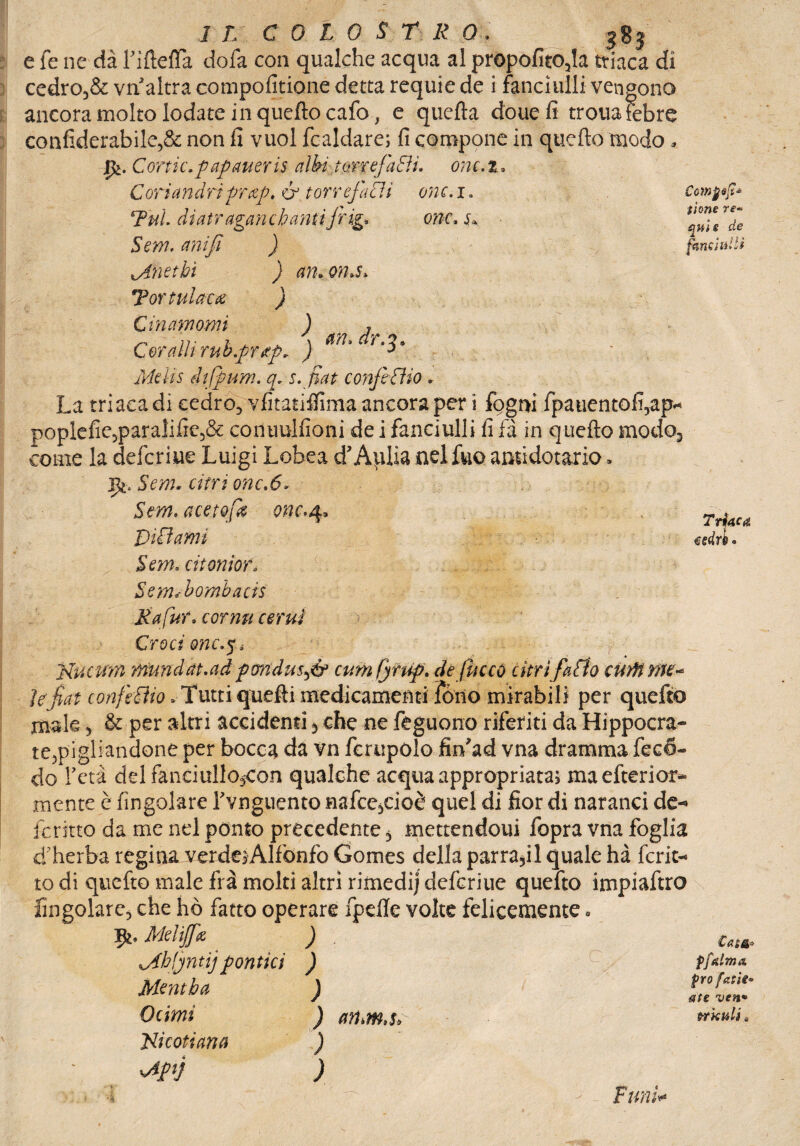 IL COLOSTRO. 383
e ſe ne dà l'iſteſſa doſa con qualche acqua al propoſito,la triaca di
cedro,& vn'altra compoſitione detta requie de i fanciulli vengono
ancora molto lodate in queſto caſo, e queſta doue ſi troua febre
conſiderabile,& non ſi vuol ſcaldare; ſi compone in queſto modo.
℞. Cortic. papaueris albi torrefacti. onc.2.
Coriandri præp. & torrefacti onc.1.
Pul. diatraganchanti frig. onc. s.
Sem. aniſi )
Anethi ) an. on.s.
Portulacæ )
Cinamomi )
Coralli rub.præp. ) an. dr.3.
Melis diſpum. q. s. fiat confectio.
Compoſitione requie de fanciulli
La triaca di cedro, vſitatiſſima ancora per i ſogni ſpauentoſi,ap-
popleſie,paraliſie,& conuulſioni de i fanciulli ſi fà in queſto modo,
come la deſcriue Luigi Lobea d'Auila nel ſuo antidotario.
℞. Sem. citri onc.6.
Sem. acetoſæ onc.4.
Dictami
Sem. citonior.
Sem. bombacis
Raſur. cornu cerui
Croci onc.5.
Triaca cedri.
Nucum mundat.ad pondus,& cum ſyrup. de ſucco citri facto cum me-
le fiat confectio. Tutti queſti medicamenti ſono mirabili per queſto
male, & per altri accidenti, che ne ſeguono riferiti da Hippocra-
te,pigliandone per bocca da vn ſcrupolo fin'ad vna dramma ſecõ-
do l'età del fanciullo,con qualche acqua appropriata; ma eſterior-
mente è ſingolare l'vnguento naſce,cioè quel di fior di naranci de-
ſcritto da me nel ponto precedente, mettendoui ſopra vna foglia
d'herba regina verde;Alfonſo Gomes della parra,il quale hà ſcrit-
to di queſto male frà molti altri rimedij deſcriue queſto impiaſtro
ſingolare, che hò fatto operare ſpeſſe volte felicemente.
℞. Meliſſæ )
Abſyntij pontici )
Mentha )
Ocimi ) an.m.s.
Nicotiana )
Apij )
Cataplalma pro fatieate ventriculi.
Funi-